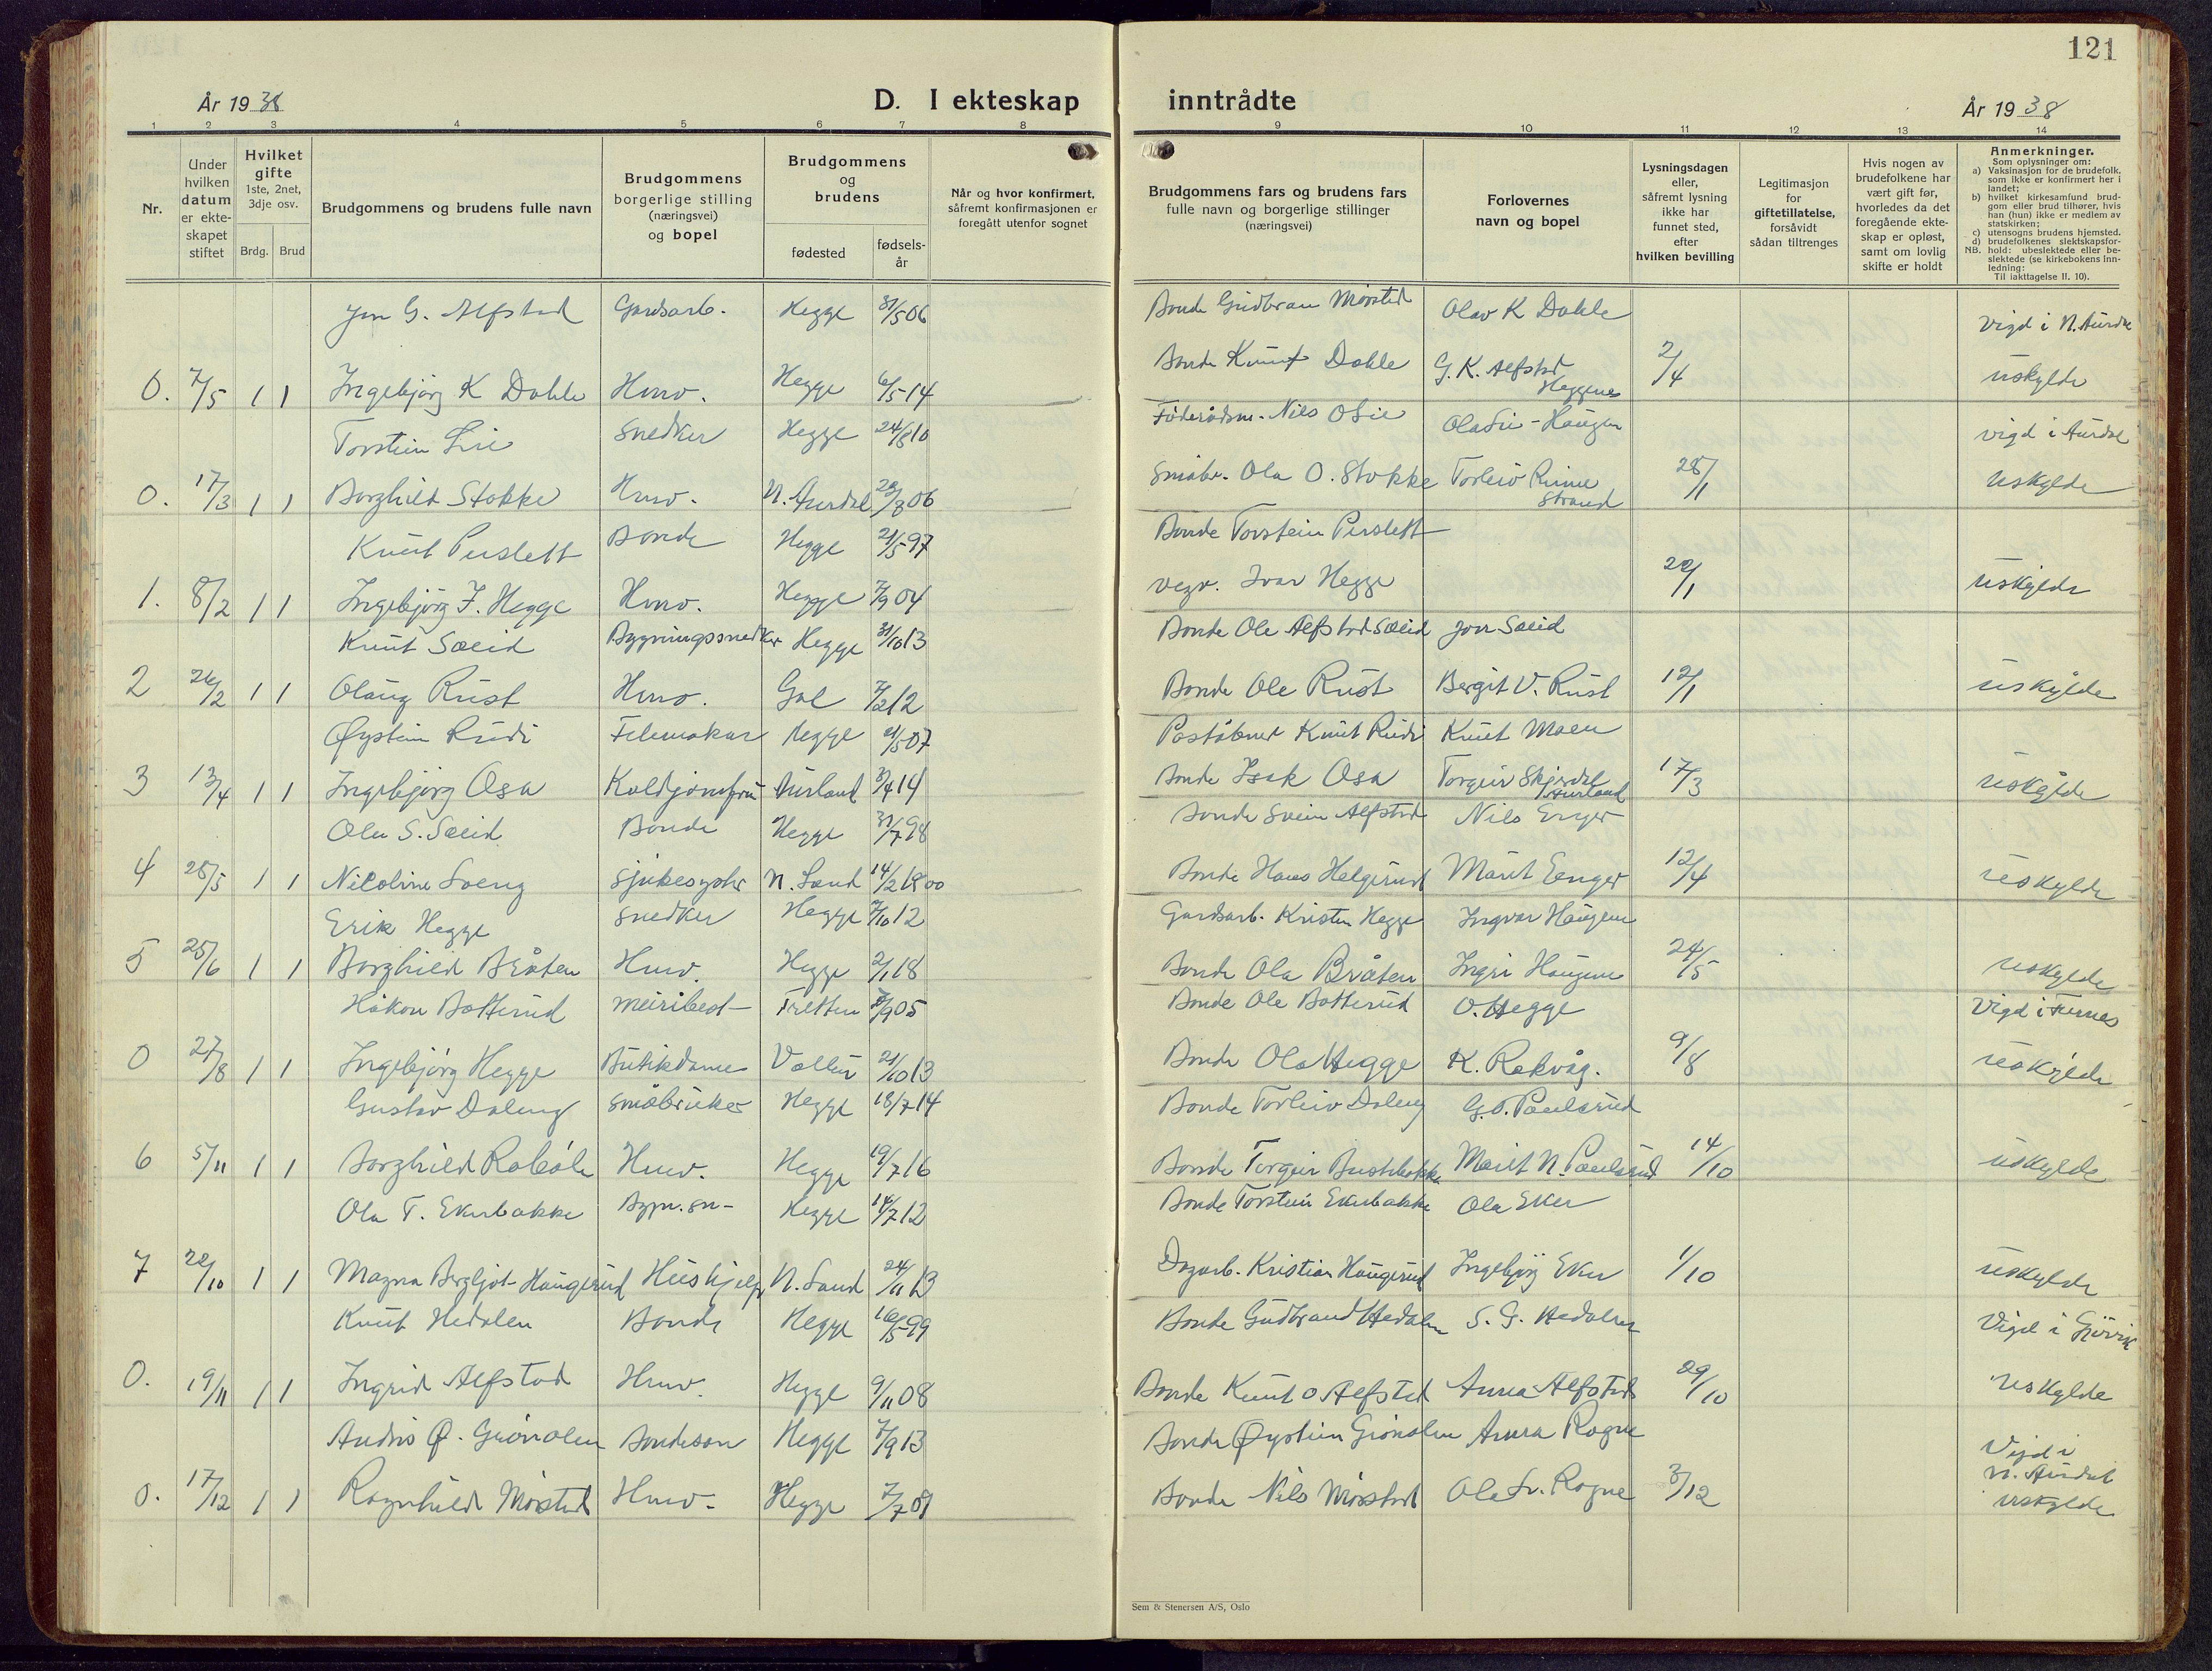 121
År 1938
D. I ekteskap inntrådte
År 1938
1 2 3 4 5 6 7 8 9 10 11 12 13 14
Nr.
Under hvilken datum er ekteskapet stiftet
Hvilket gifte 1ste, 2net, 3dje osv.
Brdg. Brud
Brudgommens og brudens fulle navn
Brudgommens borgerlige stilling (næringsvei) og bopel
Brudgommens og brudens
fødested
fødselsår
Når og hvor konfirmert, såfremt konfirmasjonen er foregått utenfor sognet
Brudgommens fars og brudens fars fulle navn og borgerlige stillinger (næringsvei)
Forlovernes navn og bopel
Lysningsdagen eller, såfremt lysning ikke har funnet sted, efter hvilken bevilling
Legitimasjon for giftetillatelse, forsåvidt sådan tiltrenges
Hvis nogen av brudefolkene har vært gift før, hvorledes da det foregående ekteskap er opløst, samt om lovlig skifte er holdt
Anmerkninger.
Som oplysninger om:
a) Vaksinasjon for de brudefolk. som ikke er konfirmert her i landet;
b) hvilket kirkesamfund brudgom eller brud tilhører, hvis han (hun) ikke er medlem av statskirken;
c) utensogns brudens hjemsted.
d) brudefolkenes slektskapsforhold: ubeslektede eller beslektede (se kirkebokens innledning:
NB.
Til iakttagelse II. 10).
Jon G. Alfstad Gardsarb. Hegge 31/5 06 Bonde Gudbran Mørstad Olav K Dahle Vigd i N. Aurdal
0. 7/5 1 1 Ingebjørg K Dahle Husv. Hegge 6/5 14 Bonde Knut Dahle G. K. Alfstad Heggenes 2/4 uskylde
Torstein Lie Snedker Hegge 24/8 10 Føderådsm. Nils O Lie Ola Lie - Haugen vigd i Aurdal
0. 17/3 1 1 Borghild Stokke Husv. N. Aurdal 06 Småbr. Ola O. Stokke Torleiv Rime Strand 28/1 uskylde
Knut Perslett Bonde Hegge 21/5 97 Bonde Torstein Perslett
1. 8/2 1 1 Ingebjørg I. Hegge Husv. Hegge 7/9 04 vegv. Ivar Hegge 22/1 uskylde
Knut Sælid Bygningssnedker Hegge 31/10 13 Bonde Ole Alfstad Sælid Jon Sælid
2 26/2 1 1 Olaug Rust Husv. Gol 7/2 12 Bonde Ole Rust Bergit V. Rust 12/1 uskylde
Øystein Rudi Felemakar Hegge 21/5 07 Poståbner Knut Rudi Knut Moen
3 13/4 1 1 Ingebjørg Osa Koldjomfru Aurland 3/4 14 Bonde Isak Osa Torgeir Skjerdal Aurland 17/3 uskylde
Ola S. Sælid Bonde Hegge 31/7 98 Bonde Svein Alfstad Nils Enger
4 28/5 1 1 Nicoline Loeng Sjukesyster N. Land 14/2 1900 Bonde Hans Helgerud Marit Enger 12/4 uskylde
Erik Hegge Snedker Hegge 7/10 12 Gardsarb. Kristen Hegge Ingvar Haugene
5 25/6 1 1 Borghild Bråten Husv. Hegge 2/1 18 Bonde Ola Bråten Ingri Haugene 24/5 uskylde
Håkon Botterud meieribest- Tretten 05 Bonde Ole Botterud O. Hegge Vigd i
0 27/8 1 1 Ingebjørg Hegge Butikdame Volbu 21/10 13 Bonde Ola Hegge K. Rekvåg. 9/8 uskylde
Gustav Daleng Småbruker Hegge 18/7 14 Bonde Torleiv Daleng G. O. Paulsrud
6 5/11 1 1 Borghild Robøle Husv. Hegge 19/7 16 Bonde Torgeir Marit N. Paulsrud 14/10 uskylde
Ola T. Ekerbakke Bygn. sn- Hegge 14/7 12 Bonde Torstein Ekerbakke Ola Eker
7 22/10 1 1 Magna Bergljot Haugerud Hushjelp N. Land 24/11 13 Dagarb. Kristian Haugerud Ingebjørg Eker 1/10 uskylde
Knut Hedalen Bonde Hegge 16/5 99 Bonde Gudbrand Hedalen S. G. Hedalen Vigd i Gjøvik
0. 19/11 1 1 Ingrid Alfstad Husv. Hegge 9/11 08 Bonde Knut O Alfstad Anna Alfstad 29/10 uskylde
Andris Ø. Grønolen Bondeson Hegge 7/9 13 Bonde Øystein Grønolen Anna Rogne Vigd i N. Aurdal
0. 17/12 1 1 Ragnhild Mørstad Husv. Hegge 7/7 09 Bonde Nils Mørstad Ola Sv. Rogne 3/12 uskylde
Sem & Stenersen A/S, Oslo